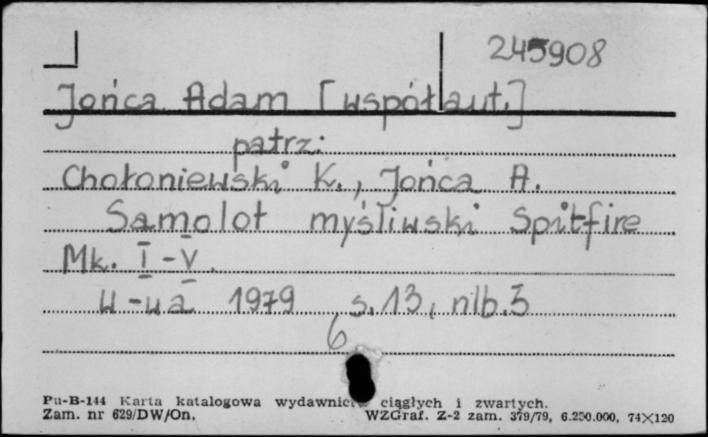 245908
Jońca Adam [współaut.]
patrz:
Chołoniewski K., Jońca A.
Samolot myśliwski Spitfire
Mk. I-V.
W-wa 1979 s. 13, nlb. 3
6
Pu-B-144 Karta katalogowa wydawnictw ciągłych i zwartych.
Zam. nr 629/DW/On. WZGraf. Z-2 zam. 379/79, 6.250.000, 74×120